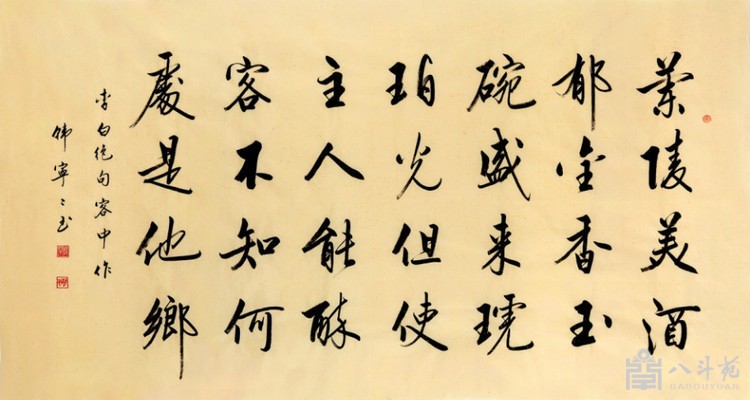 蘭陵美酒
郁金香玉
碗盛来琥
珀光但使
主人能醉
客不知何
處是他鄉
李白绝句客中作
韩寧〻书
八斗苑
BADOUYUAN